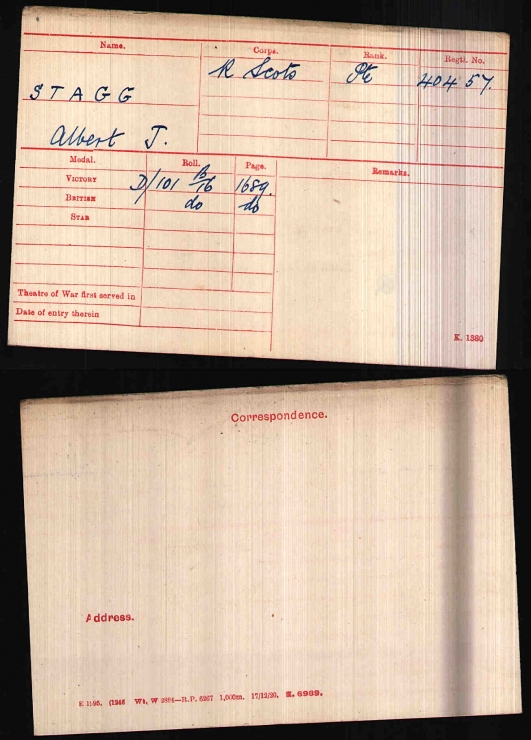 Name. Corps. Rank. Regtl. No.
R Scots Pte 40457.
STAGG
Albert J.
Medal. Roll. Page. Remarks.
VICTORY D/101 B/16 1689.
BRITISH do do
STAR
Theatre of War first served in
Date of entry therein
K. 1380
Correspondence.
Address.
E 1595. (1946 Wt. W 2894—R.P. 6267 1,000m. 17/12/20. K. 6989.